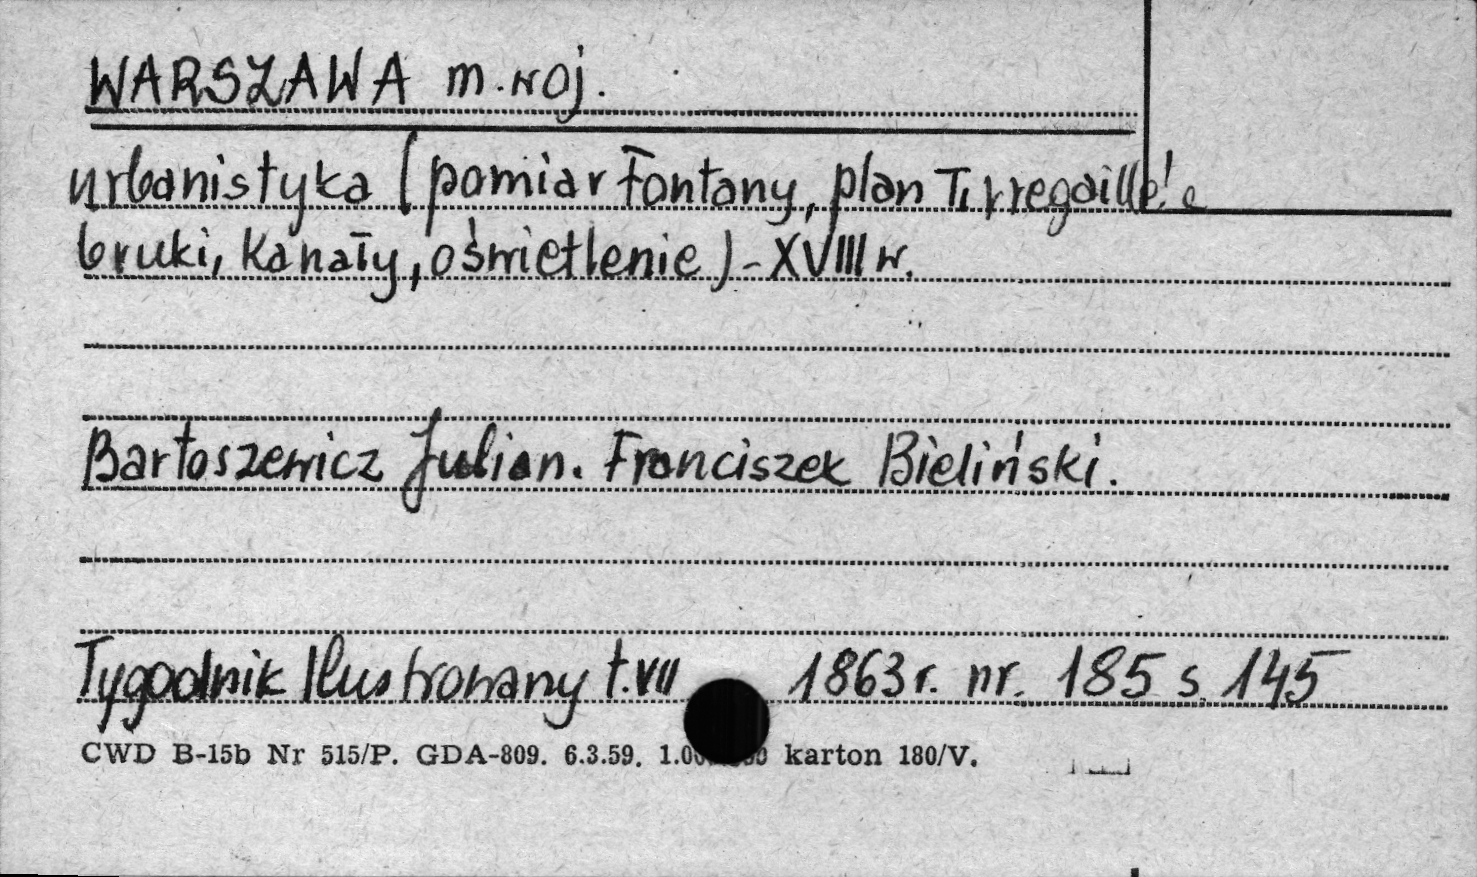 WARSZAWA m. woj.
urbanistyka (pomiar Fontany, plan Tirregaille'e
bruki, kanały, oświetlenie) - XVIII w.
Bartoszewicz Julian. Franciszek Bieliński.
Tygodnik Ilustrowany t. VII 1863 r. nr. 185 s. 145
CWD B-15b Nr 515/P. GDA-809. 6.3.59. karton 180/V.